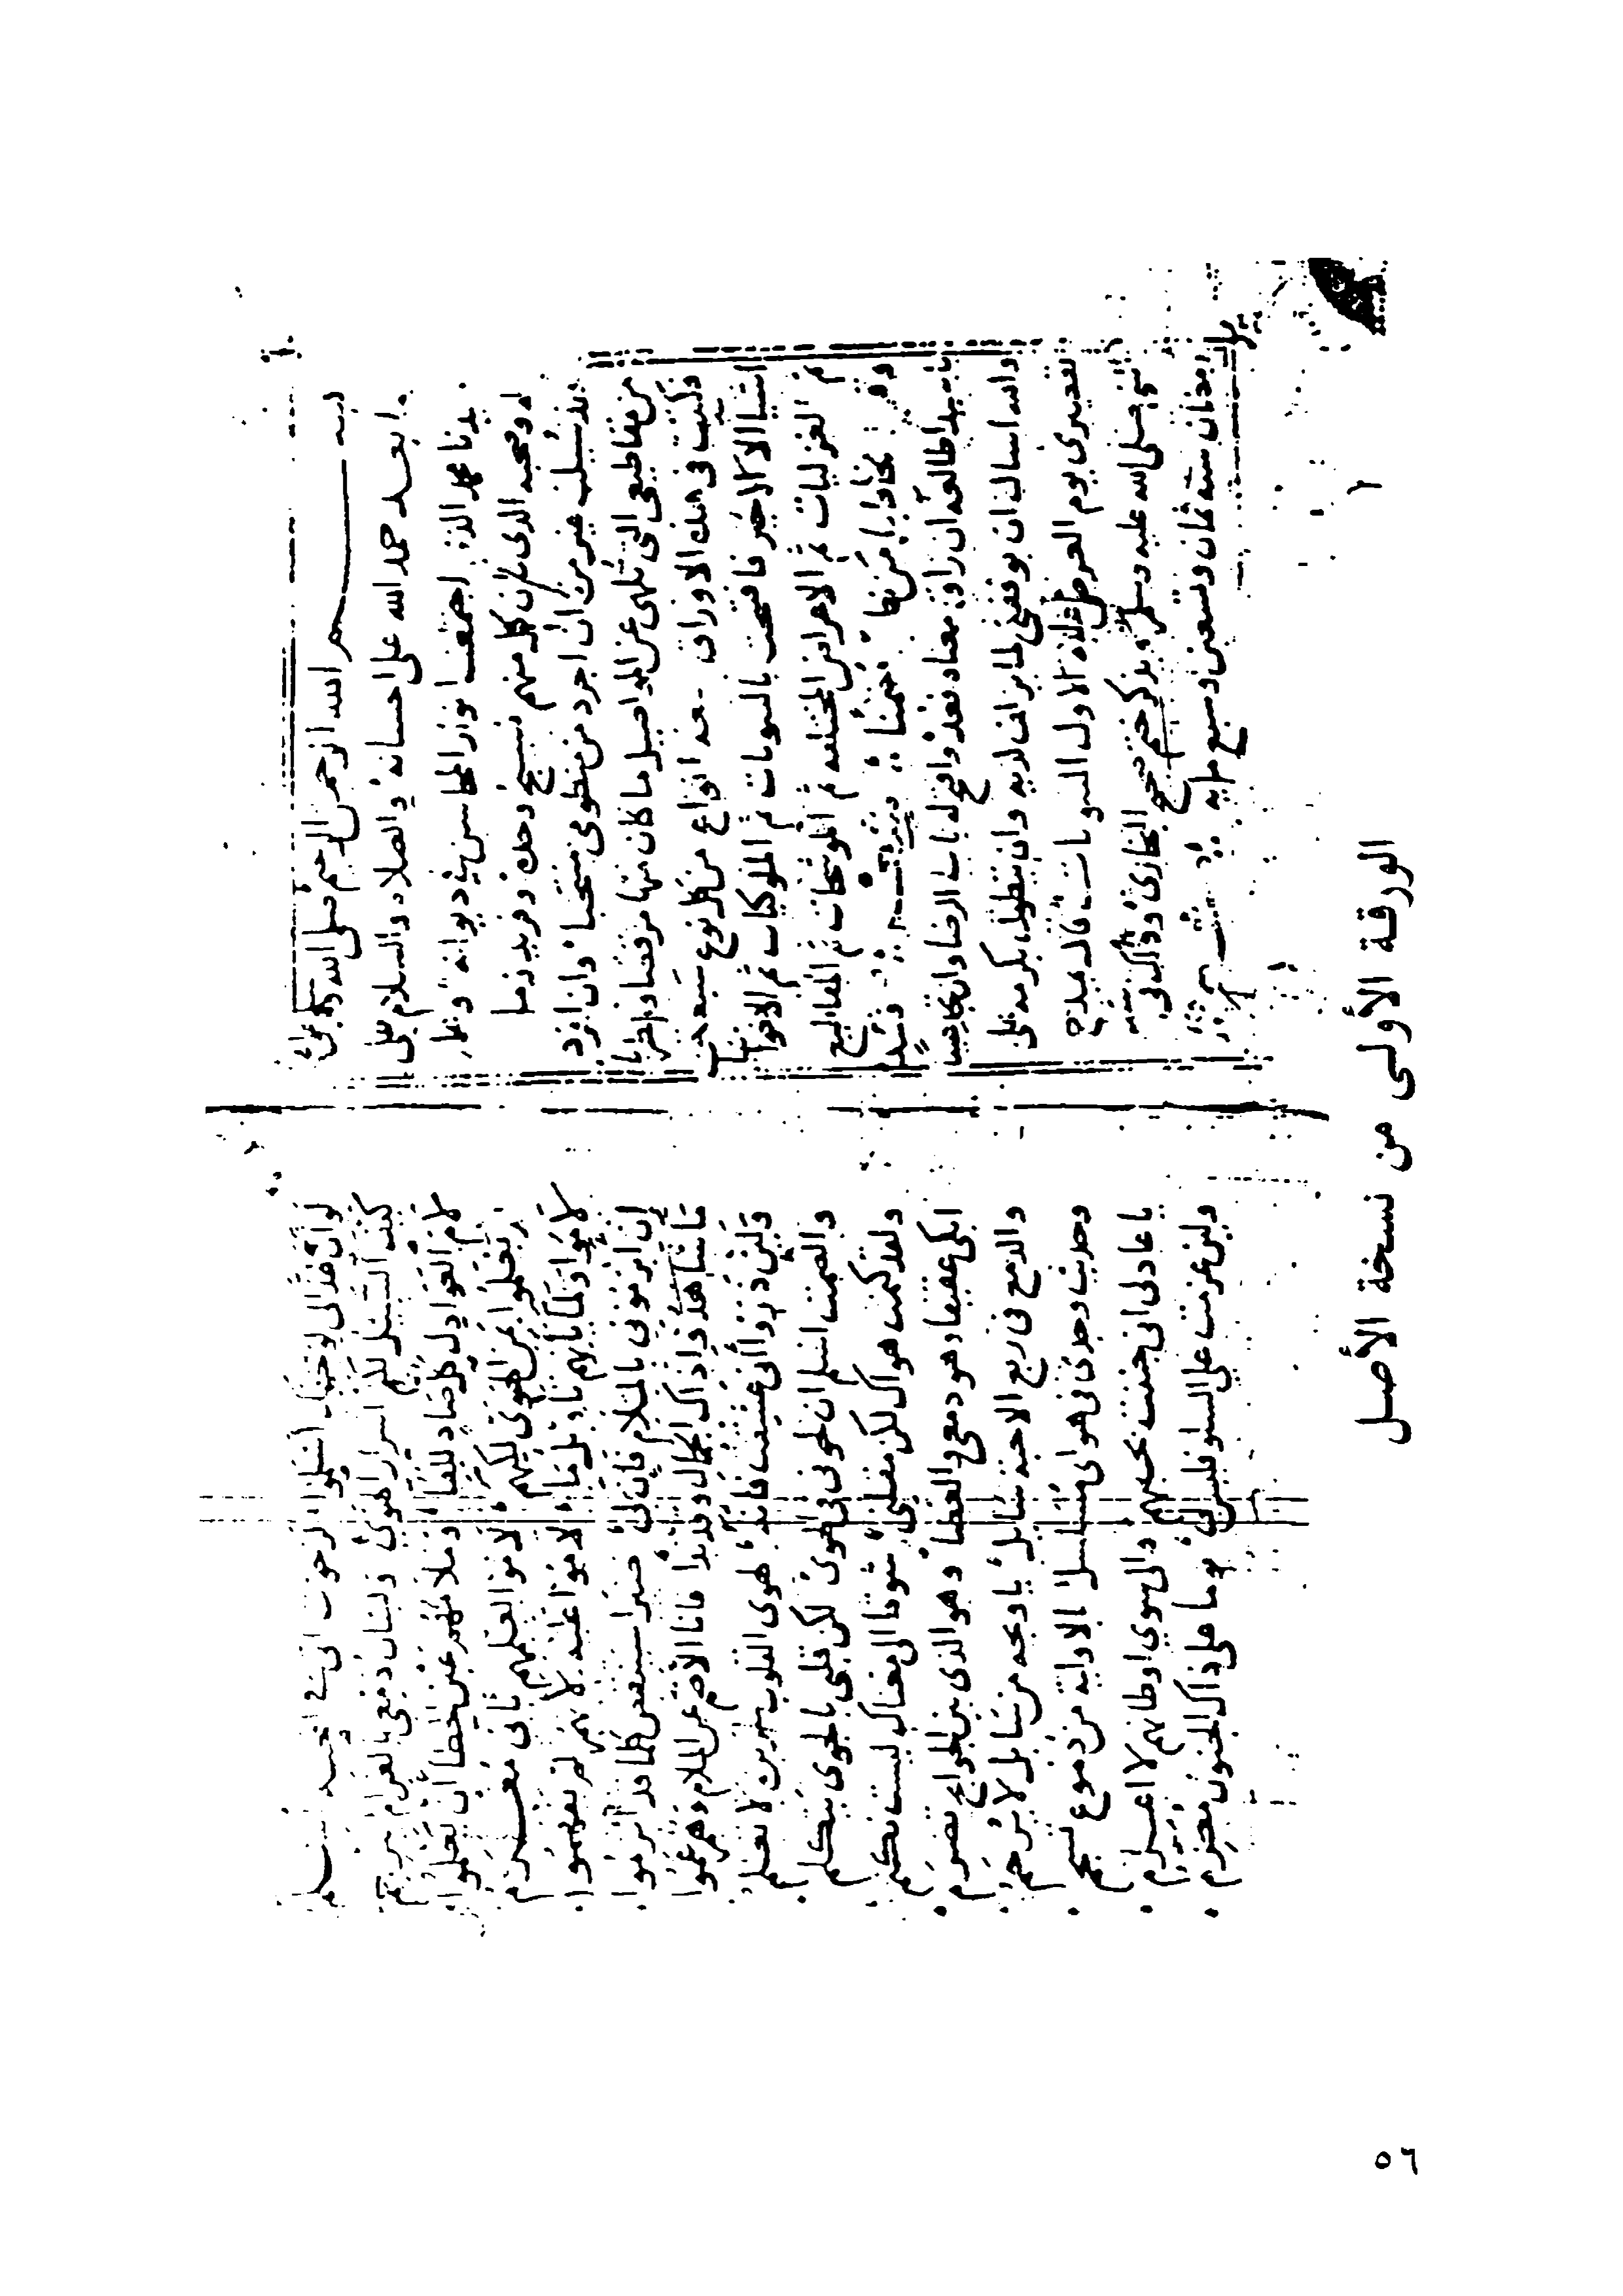 بسم الله الرحمن الرحيم صلى الله
اما بعد حمد الله على احسانه والصلاة والسلام على
سيدنا محمد الذي اجتمعت انواع المحاسن في ديوانه وعلى
اله وصحبه الذي كان كل منهم نسيج وحده وفريد زما
فقد سئلت غير مرة ان اجرد من منظومي منتخبا وان افرد
من مقاطيعي التي تلهى عن المواصيل ما كان منها مرقصا و
فكتبت في هذه الاوراق سبعة انواع من كل نوع سبعة
اشيا الا الاخير فافتتحت بالنبويات ثم الملوكيات ثم الاخوانيات
ثم الغزليات ثم الاغراض المختلفة ثم الموشحات ثم المقاطيع
معناه فقد وافتح له باب الرضا وان
والله اسال ان يوفقني لما يزلف لديه وان يتطول بكرمه على
تقصيري يوم العرض عليه الاول النبويات قال يمدح
النبي صلى الله عليه وسلم ويذكر ختم صحيح البخاري وذلك في
رمضان سنة ثمان وتسعين وسبع مايه
لو ان عذالي لوجهك اسلموا لرجوت اني في المحبة اسلم
كيف السبيل لكتم اسرار الهوى ولسان دمعي بالغرام يترجم
لام العواذل كل صاد للقا وملامهم عين الخطا ان يعلموا
لم يعلموا بمن الهوى لكنهم لاموا لعلمهم باني مغرم
لاموا ولما يأتهم تاويل ما لاموا عليه لانهم لم يفهموا
ان ابرموني بالملام فان لي صبرا سينقض كلما قد ابرموا
ما شاهدوا ذاك الجمال وقد بدا فانا الاصم عن الملام وهم عموا
ولئن دروا اني عشقت فانه لهوى القلوب سريرة لا تعلم
والصمت اسلم ان لحوني في الهوى لكن قلبي بالجوى يتكلم
ولقد كتمت هواك لكن مقلتي شوقا الى مغناك ليست تكتم
ابكي عقيقا وهو دمعي والغضا وهو الذي بين الجوانح تضرم
والدمع في ربع الاحبة سائل يا ويحه من سائل لا يرحم
وحديث وجدي في هواي مسلسل بالاوليه من دموع تسجم
يا عاذلي اني جننت بحبهم والى سوى اوطانهم لا اعزم
ولئن عزمت على السلو فليس لي يوما على ذاك الجنون معزم
الورقة الأولى من نسخة الأصل
٥٦